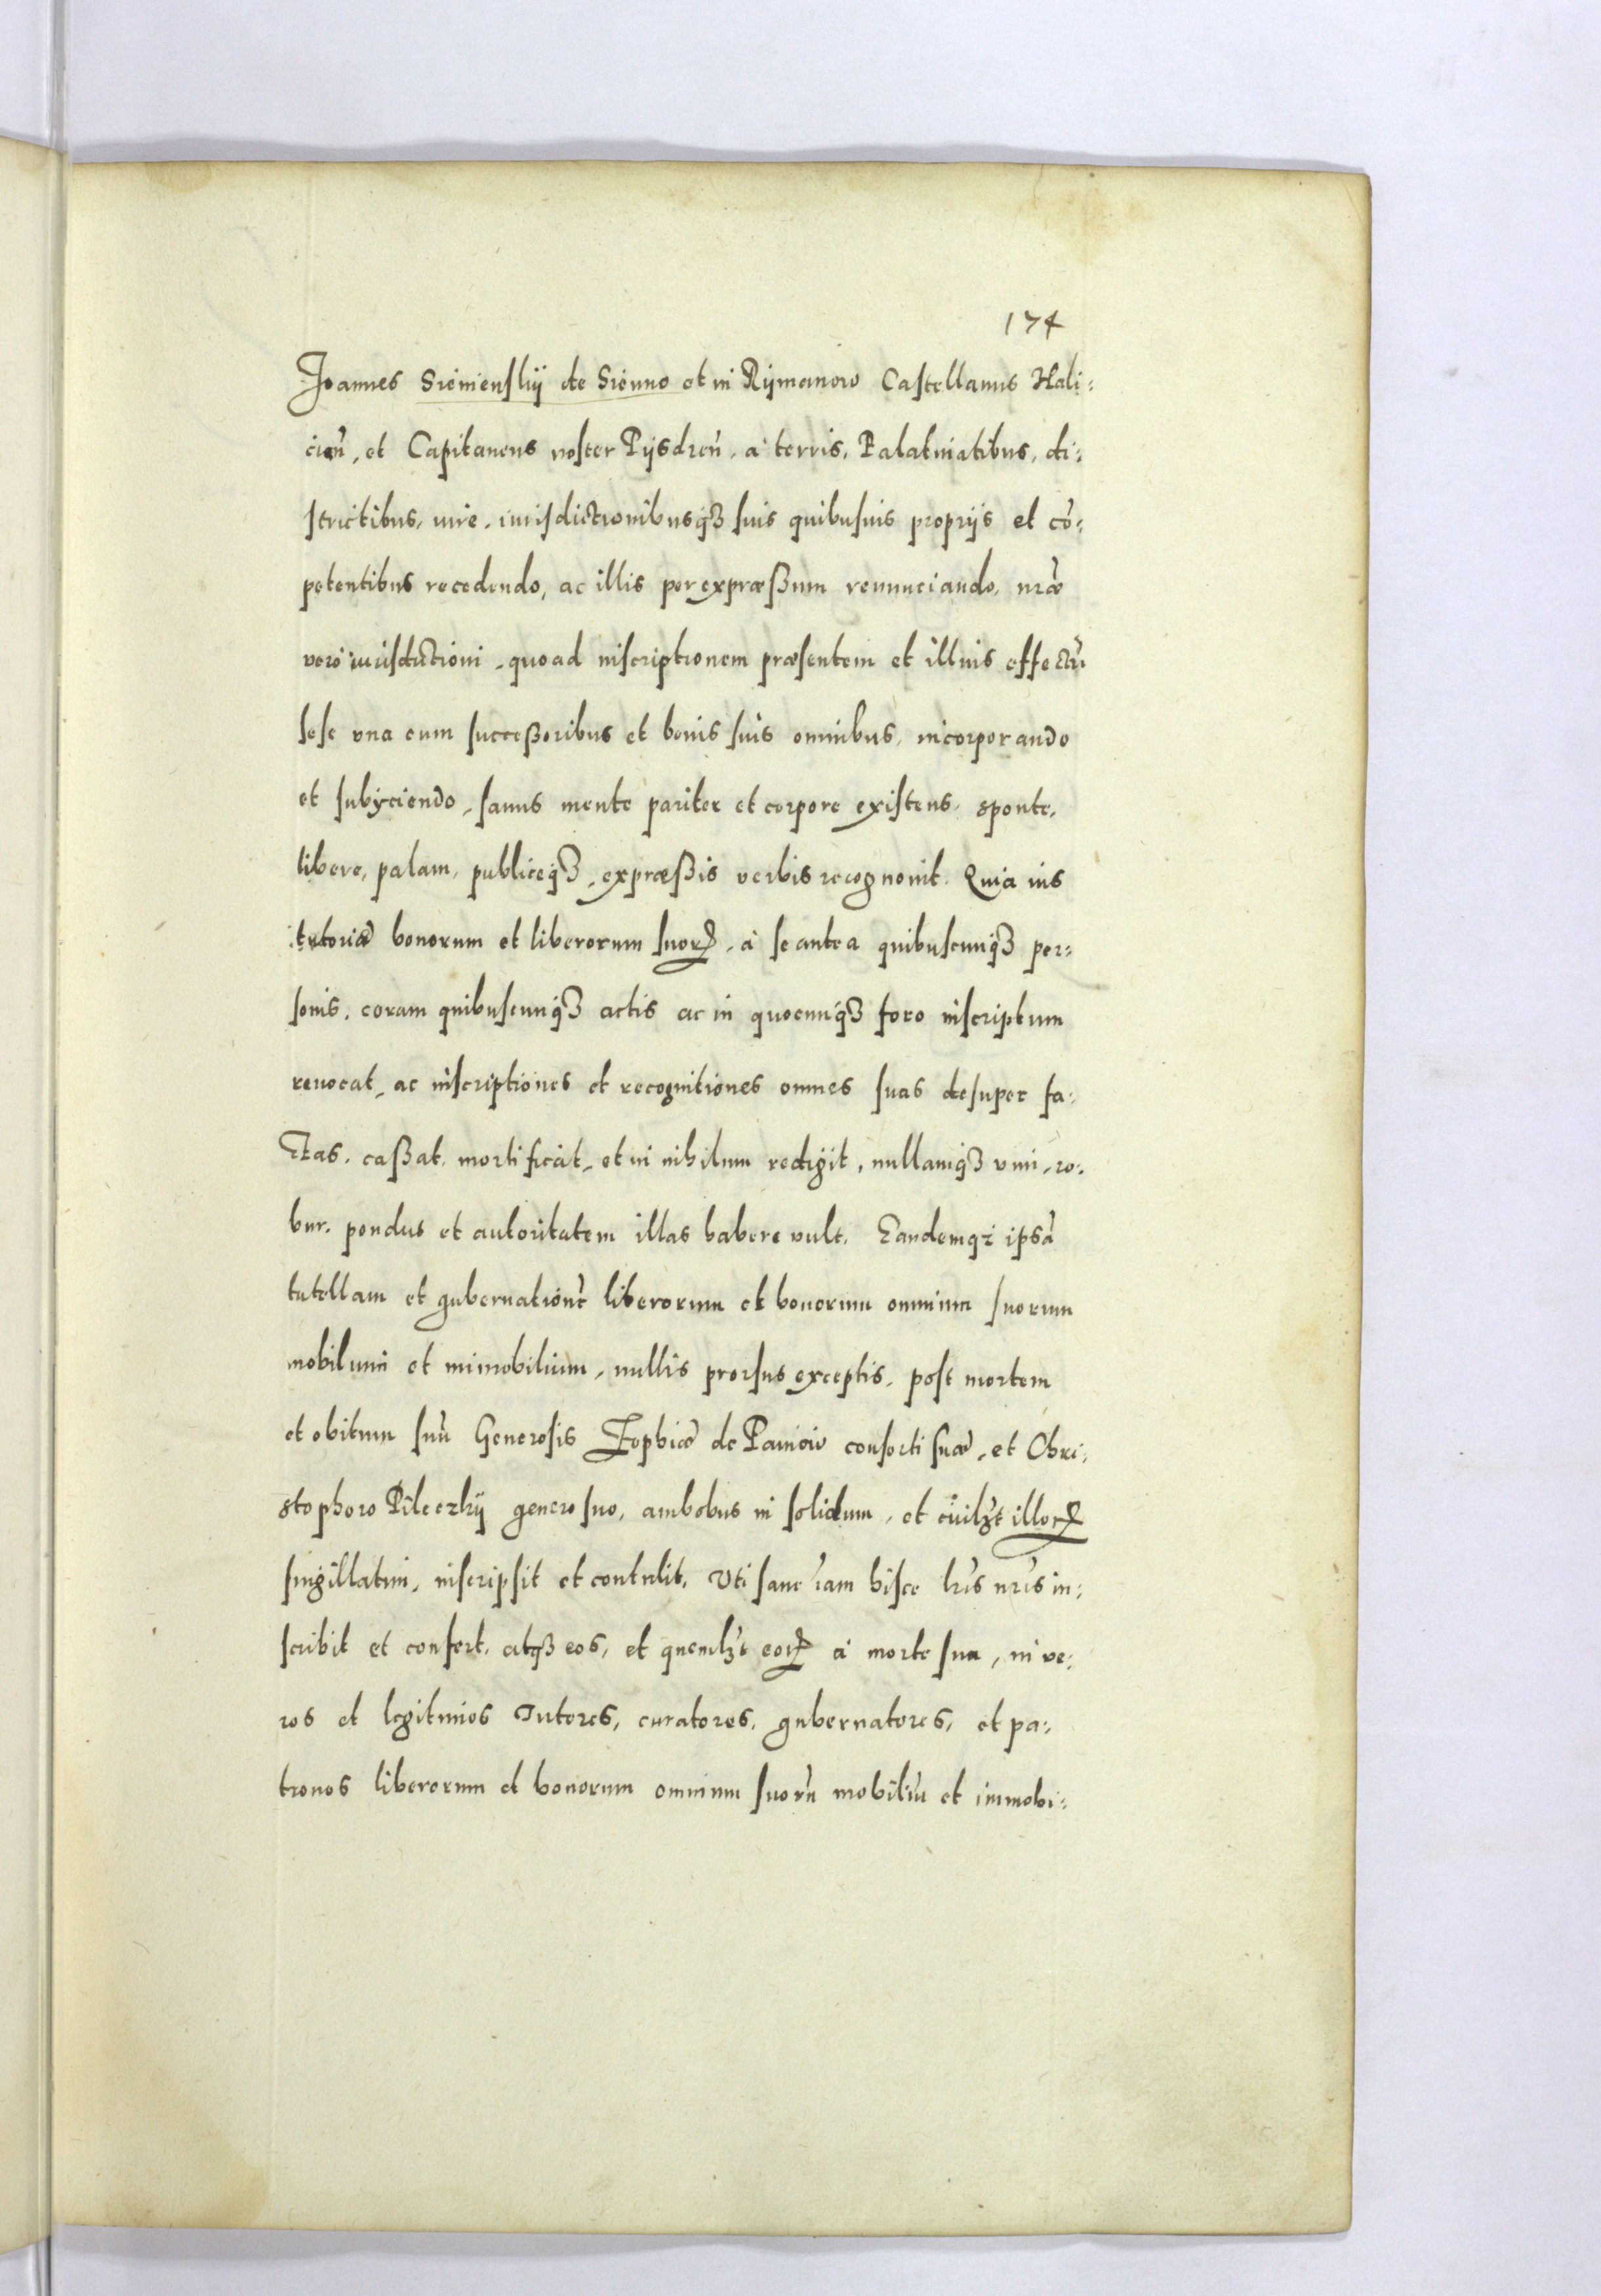 174
Joannes Sienienskij de Sienno et in Rijmanow Castellanus Hali:
cien̄, et Capitaneus noster Pijsdren̄, a terris, Palatinatibus, di:
strictibus, iure, iurisdictionibusq3 suis quibusuis proprijs et cō:
petentibus recedendo, ac illis per expræßum renunciando, nr̄æ
vero iurisdictioni, quoad inscriptionem præsentem et illius effectū
sese vna cum succeßoribus et bonis suis omnibus, incorporando
et subijciendo, sanus mente pariter et corpore existens, sponte,
libere, palam, publiceq3, expræßis verbis recognouit. Quia ius
tutoriæ bonorum et liberorum suorꝝ, a se antea quibuscunq3 per:
sonis, coram quibuscunq3 actis ac in quocunq3 foro inscriptum
reuocat, ac inscriptiones et recognitiones omnes suas desuper fa:
ctas, caßat, mortificat, et in nihilum redigit, nullamq3 vim, ro:
bur, pondus et autoritatem illas habere vult. Eandemq3 ipsā
tutellam et gubernationē liberorum et bonorum omnium suorum
mobilium et immobilium, nullis prorsus exceptis, post mortem
et obitum suū Generosis Zophiæ de Paniow consorti suæ, et Chri:
stophoro Pileczkij genero suo, ambobus in solidum, et cuilꝫt illorꝝ
singillatim, inscripsit et contulit, Vti sane iam hisce lr̄is nr̄is in:
scribit et confert, atq3 eos, et quemlꝫt eorꝝ a morte sua, in ve:
ros et legitimos Tutores, curatores, gubernatores, et pa:
tronos liberorum et bonorum omnium suorū mobiliū et immobi: